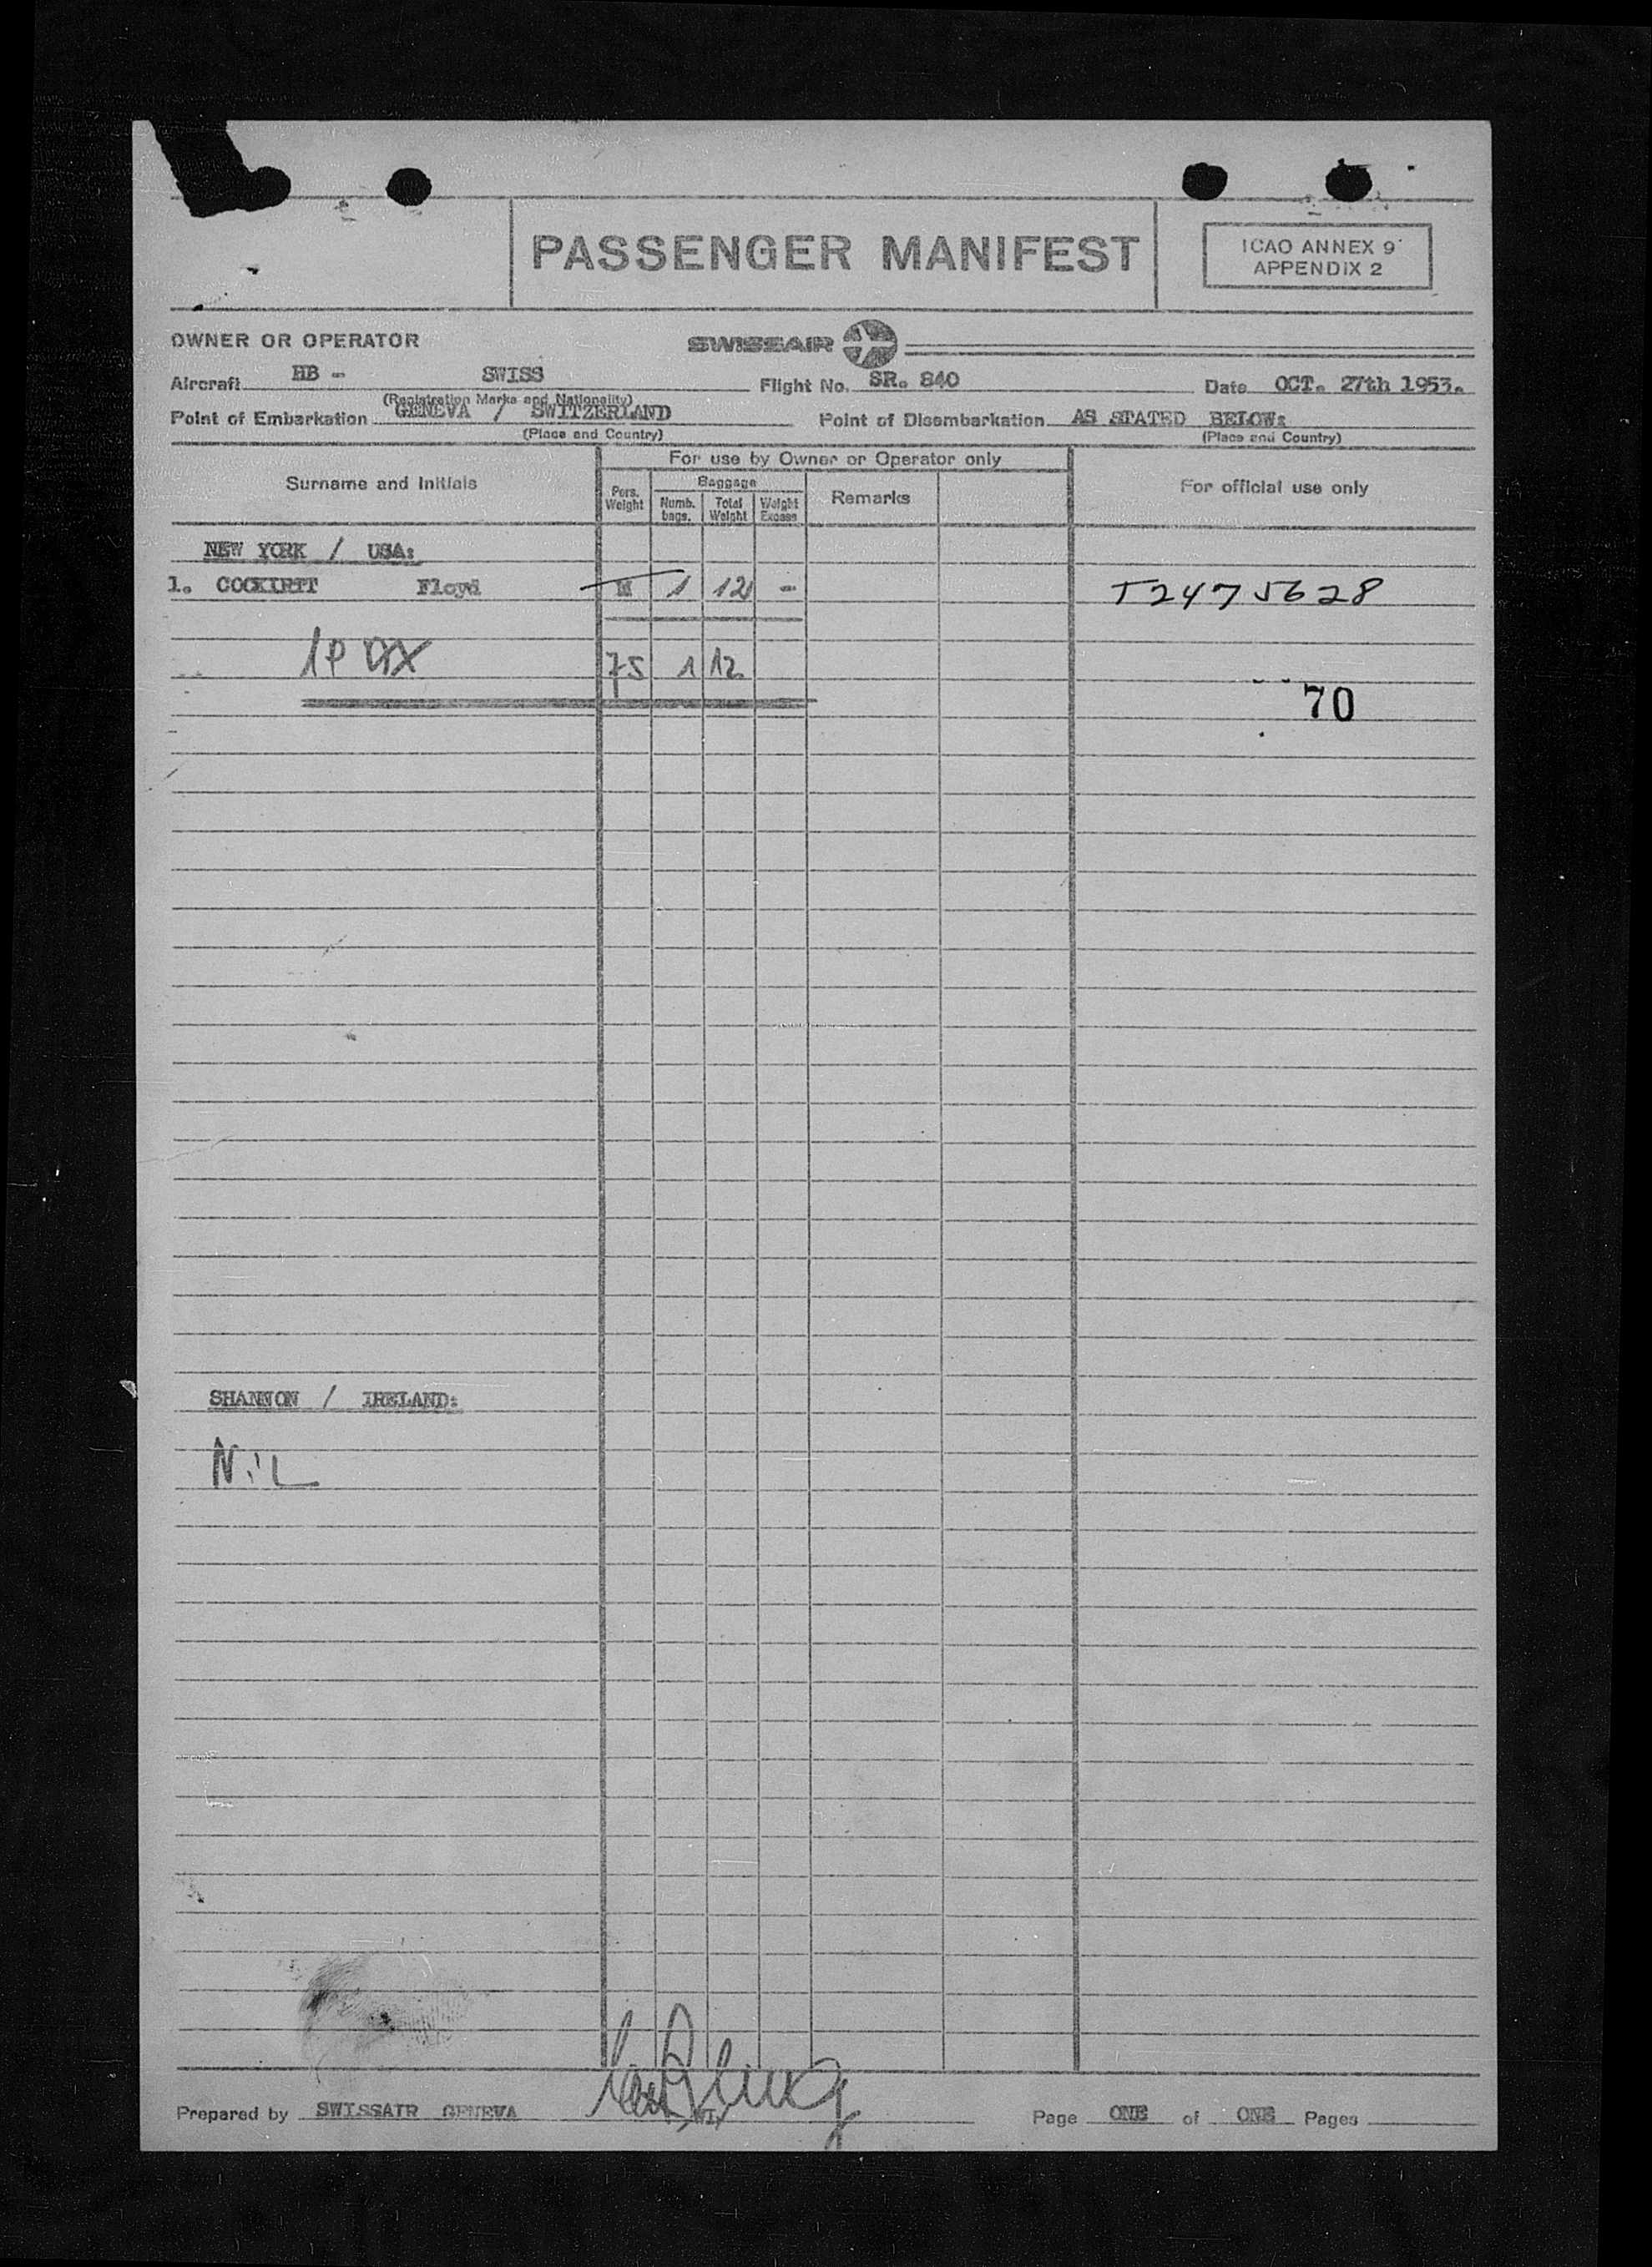 PASSENGER MANIFEST
ICAO ANNEX 9
APPENDIX 2
OWNER OR OPERATOR SWISSAIR
Aircraft HB - SWISS Flight No. SR. 840 Date OCT. 27th 1953.
(Registration Marks and Nationality)
Point of Embarkation GENEVA / SWITZERLAND Point of Disembarkation AS STATED BELOW:
(Place and Country) (Place and Country)
For use by Owner or Operator only
Surname and Initials Pers. Weight Baggage Numb. bags. Total Weight Weight Excess Remarks For official use only
NEW YORK / USA:
1. Floyd M 1 12 - T2475628
1P 75 1 12
70
SHANNON / IRELAND:
NiL
Prepared by SWISSAIR GENEVA Page ONE of ONE Pages